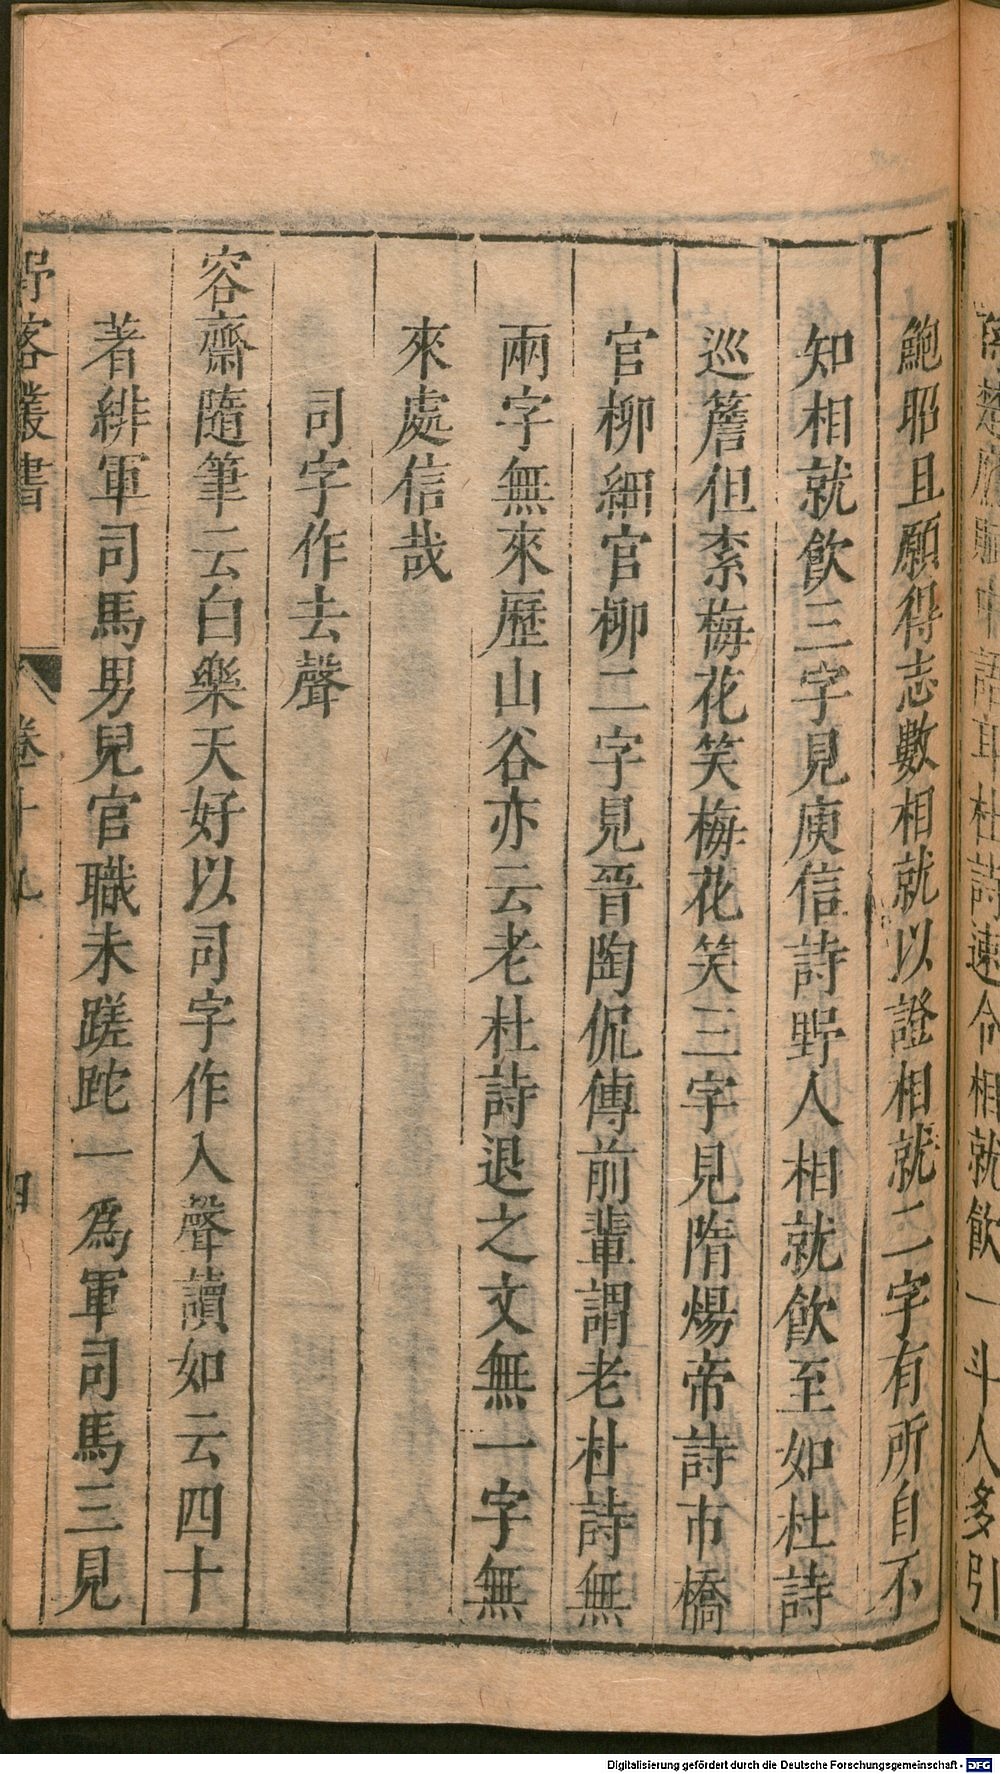 語耳杜詩速令相就飲一斗人多引
鮑昭且願得志數相就以證相就二字有所自不
知相就飲三字見庾信詩野人相就飲至如杜詩
巡簷但索梅花笑梅花笑三字見隋煬帝詩市橋
官柳細官柳二字見晉陶侃傳前輩謂老杜詩無
兩字無來歷山谷亦云老杜詩退之文無一字無
來處信哉
司字作去聲
容齋隨筆云白樂天好以司字作入聲讀如云四十
著緋軍司馬男兒官職未蹉跎一爲軍司馬三見
野客叢書 卷十九 四
Digitalisierung gefördert durch die Deutsche Forschungsgemeinschaft - DFG